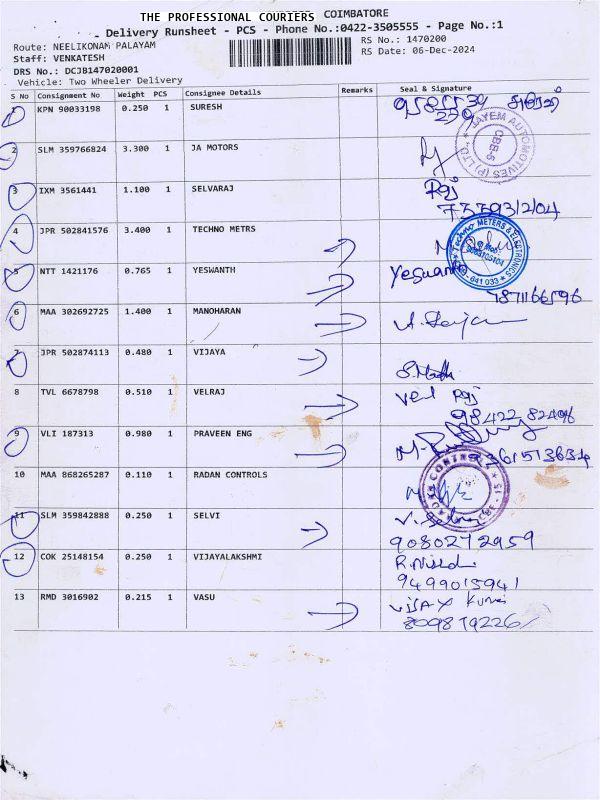 THE PROFESSIONAL COURIERS COIMBATORE
Delivery Runsheet - PCS - Phone No.:0422-3505555 - Page No.:1
Route: NEELIKONAM PALAYAM
RS No.: 1470200
Staff: VENKATESH
RS Date: 06-Dec-2024
DRS No.: DCJB147020001
Vehicle: Two Wheeler Delivery
S No Consignment No Weight PCS Consignee Details Remarks Seal & Signature
1 KPN 90033198 0.250 1 SURESH
2 SLM 359766824 3.300 1 JA MOTORS
JAYEM AUTOMOTIVES (P) LTD. CBE-6
3 IXM 3561441 1.100 1 SELVARAJ Raj
4 JPR 502841576 3.400 1 TECHNO METRS
Techno METERS & ELECTRONICS 641 033
5 NTT 1421176 0.765 1 YESWANTH Yeswanth
7871166596
6 MAA 302692725 1.400 1 MANOHARAN
7 JPR 502874113 0.480 1 VIJAYA
8 TVL 6678798 0.510 1 VELRAJ Vel Raj
98422 82496
9 VLI 187313 0.980 1 PRAVEEN ENG
10 MAA 868265287 0.110 1 RADAN CONTROLS
11 SLM 359842888 0.250 1 SELVI
9080272959
12 COK 25148154 0.250 1 VIJAYALAKSHMI
9499015941
13 RMD 3016902 0.215 1 VASU Vijay Kumar
809879226